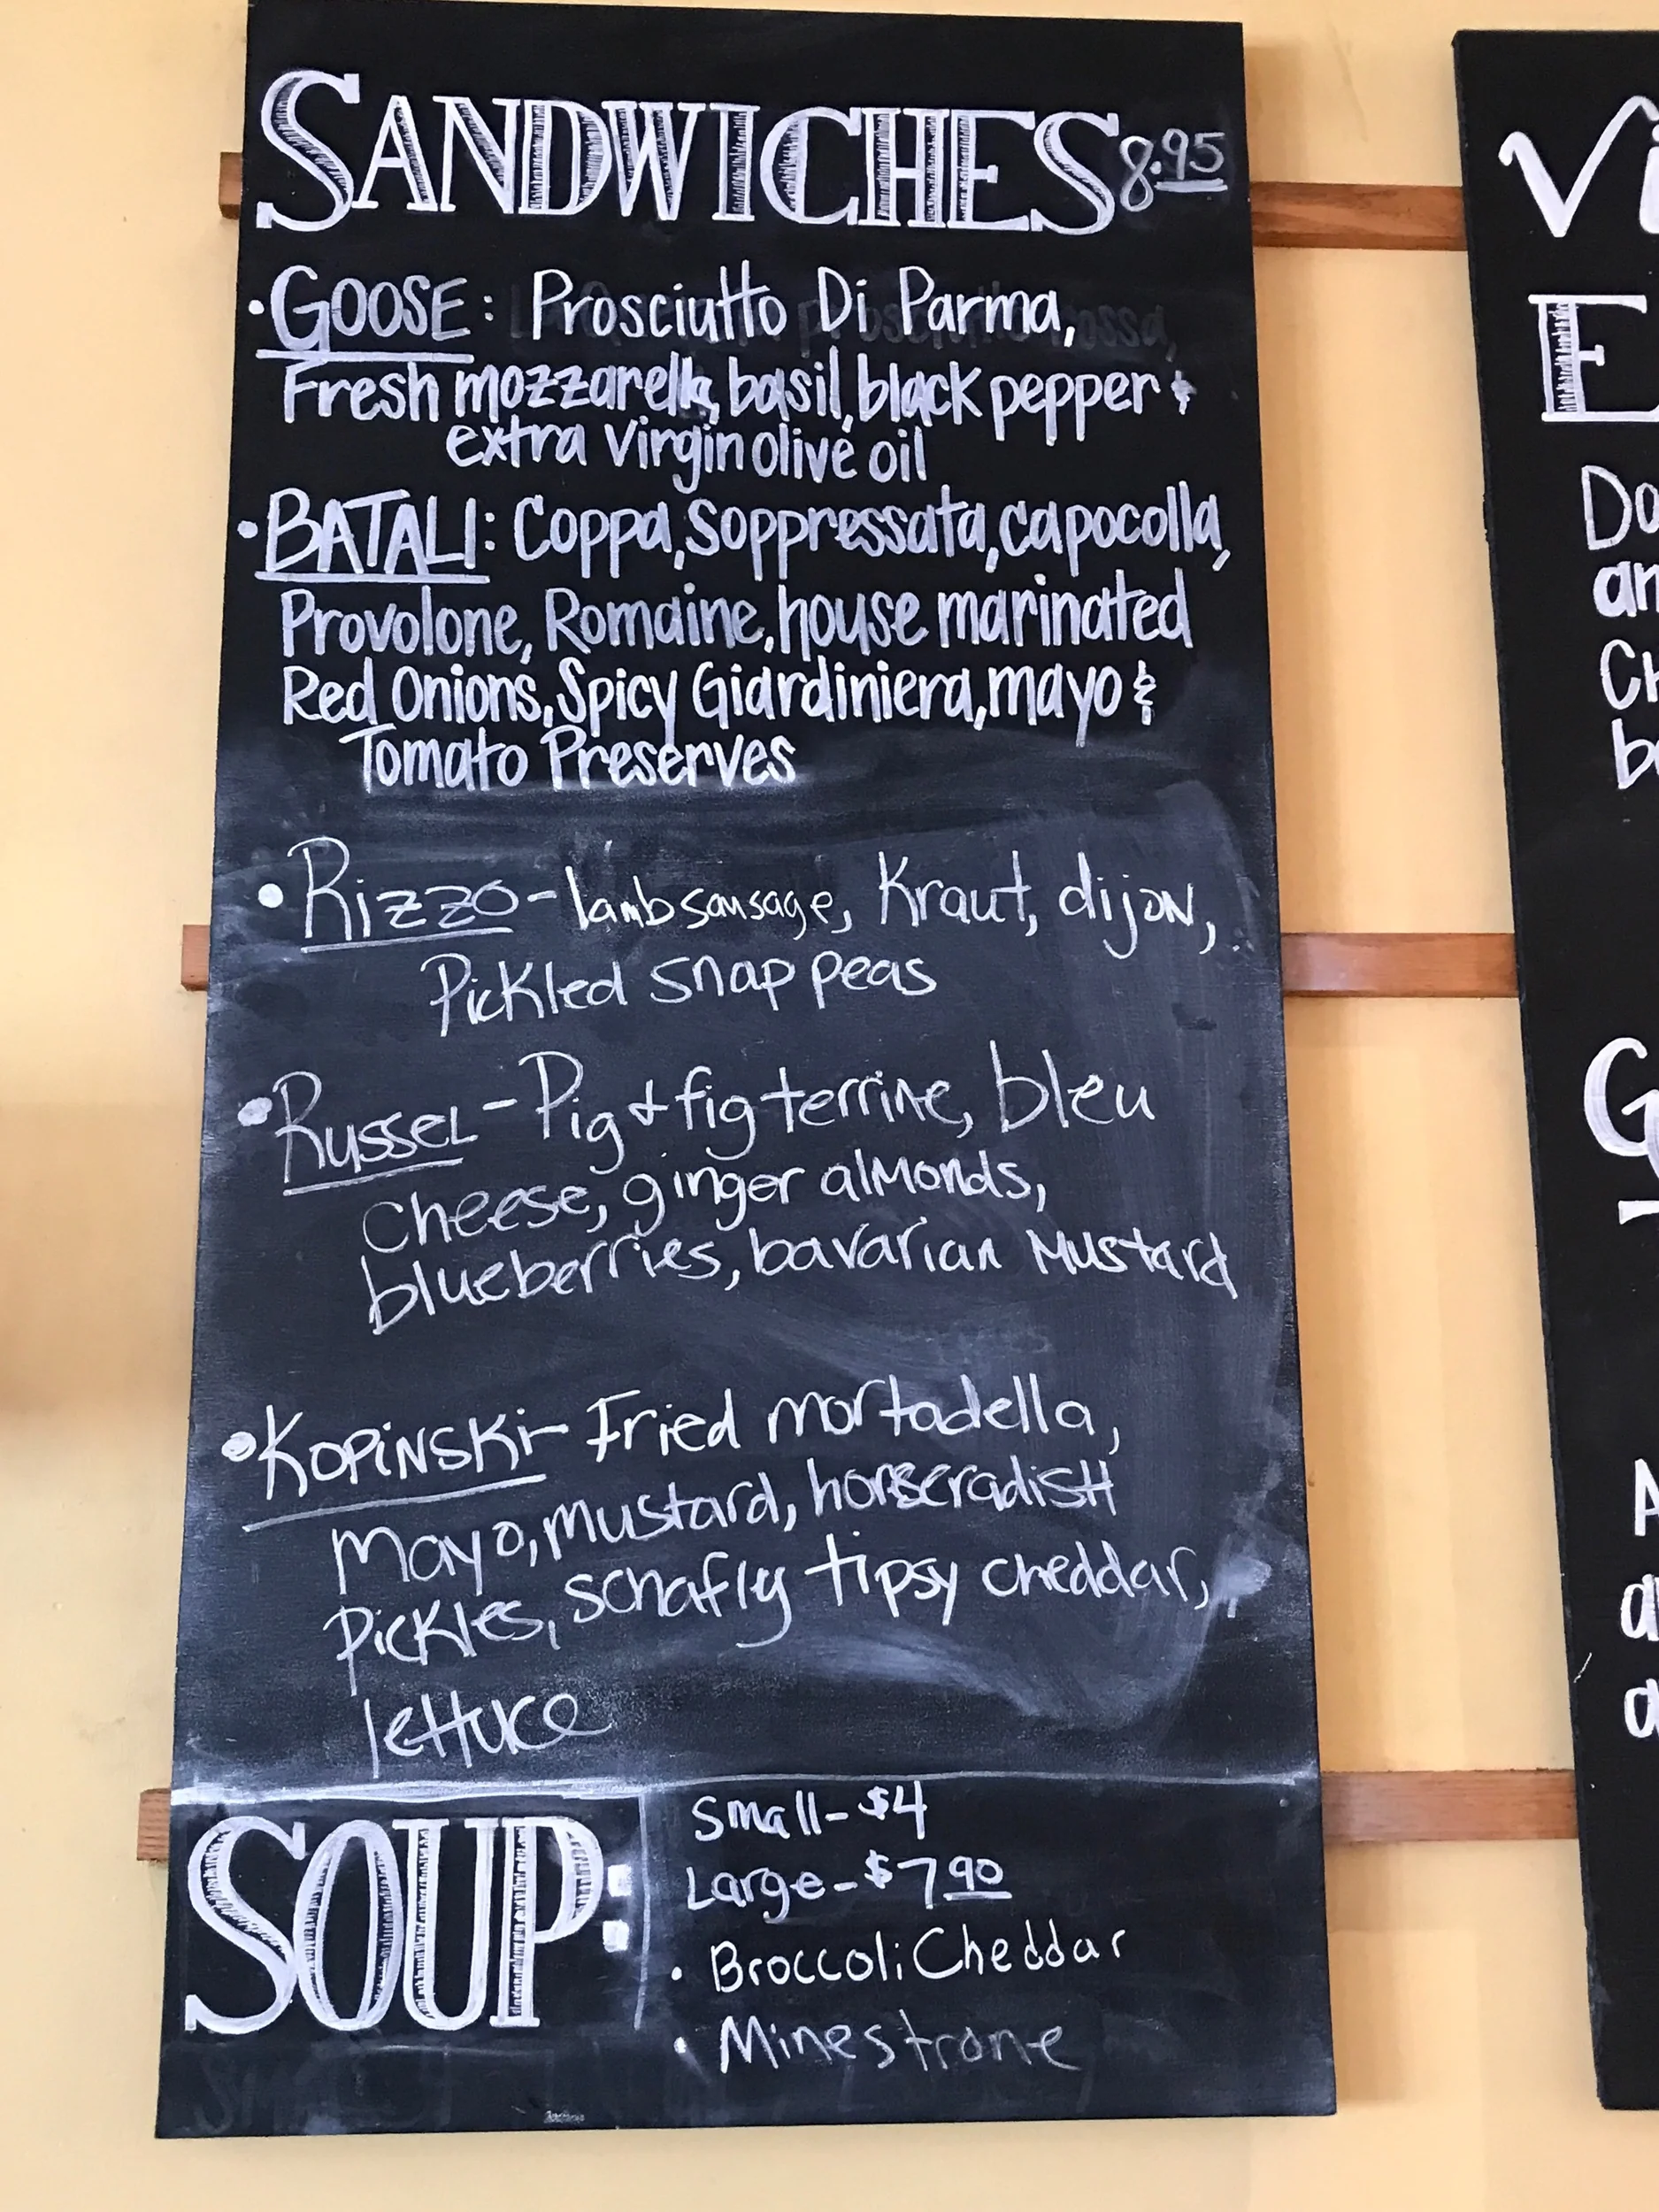 SANDWICHES 8.95
• GOOSE: Prosciutto Di Parma,
Fresh mozzarella, basil, black pepper &
extra virgin olive oil
• BATALI: Coppa, Soppressata, capocolla,
Provolone, Romaine, house marinated
Red Onions, Spicy Giardiniera, mayo &
Tomato Preserves
• Rizzo - lamb sausage, Kraut, dijon,
Pickled snap peas
• Russel - Pig & fig terrine, bleu
cheese, ginger almonds,
blueberries, bavarian mustard
• Kopinski - Fried mortadella,
Mayo, mustard, horseradish
pickles, schafly tipsy cheddar,
lettuce
SOUP:
Small - $4
Large - $7 90
• Broccoli Cheddar
• Minestrone
Vi
E
Do
an
Ch
be
G
A
a
a
a